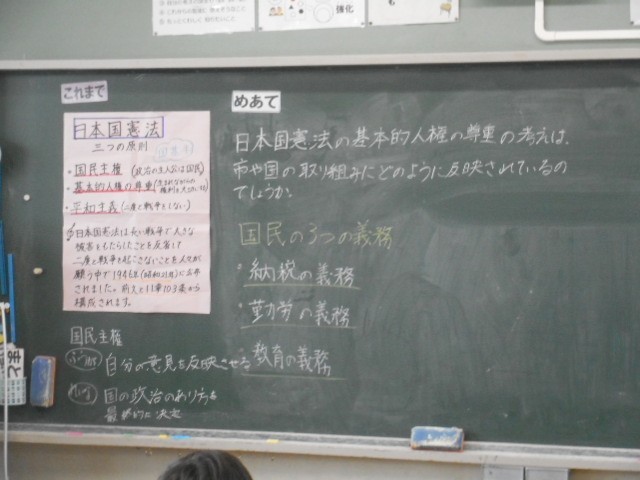 強化
も
これまで
日本国憲法
三つの原則
・国民主権 (政治の主人公は国民)
・基本的人権の尊重
・平和主義 (二度と戦争をしない)
日本国憲法は長い戦争で大きな
被害をもたらしたことを反省して
二度と戦争を起こさないことを人々が
願う中で1946年(昭和21年)に公布
されました。前文と11章103条から
構成されます。
国民主権
自分の意見を反映させる
国の政治のあり方を
最終的に決定
めあて
日本国憲法の基本的人権の尊重の考えは、
市や国の取り組みにどのように反映されているの
でしょうか。
国民の3つの義務
・納税の義務
・勤労の義務
・教育の義務
まと